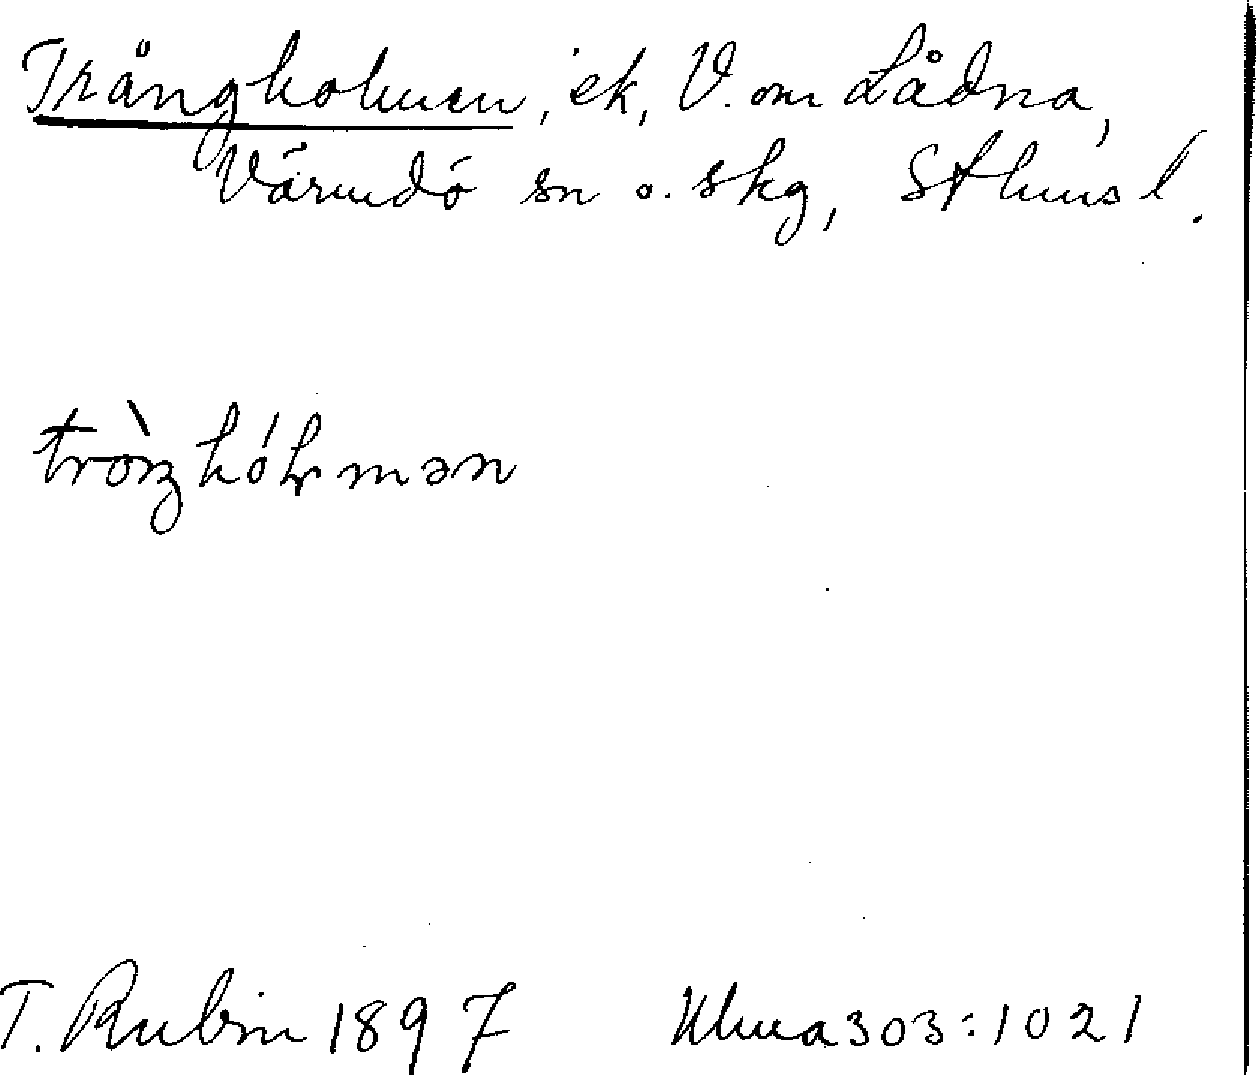 Trångholmen, ek, V. om Lådna,
Värmdö sn o. skg, Sthms l.
tròŋhólmən
T. Rubin 1897 Uluma 303:1021